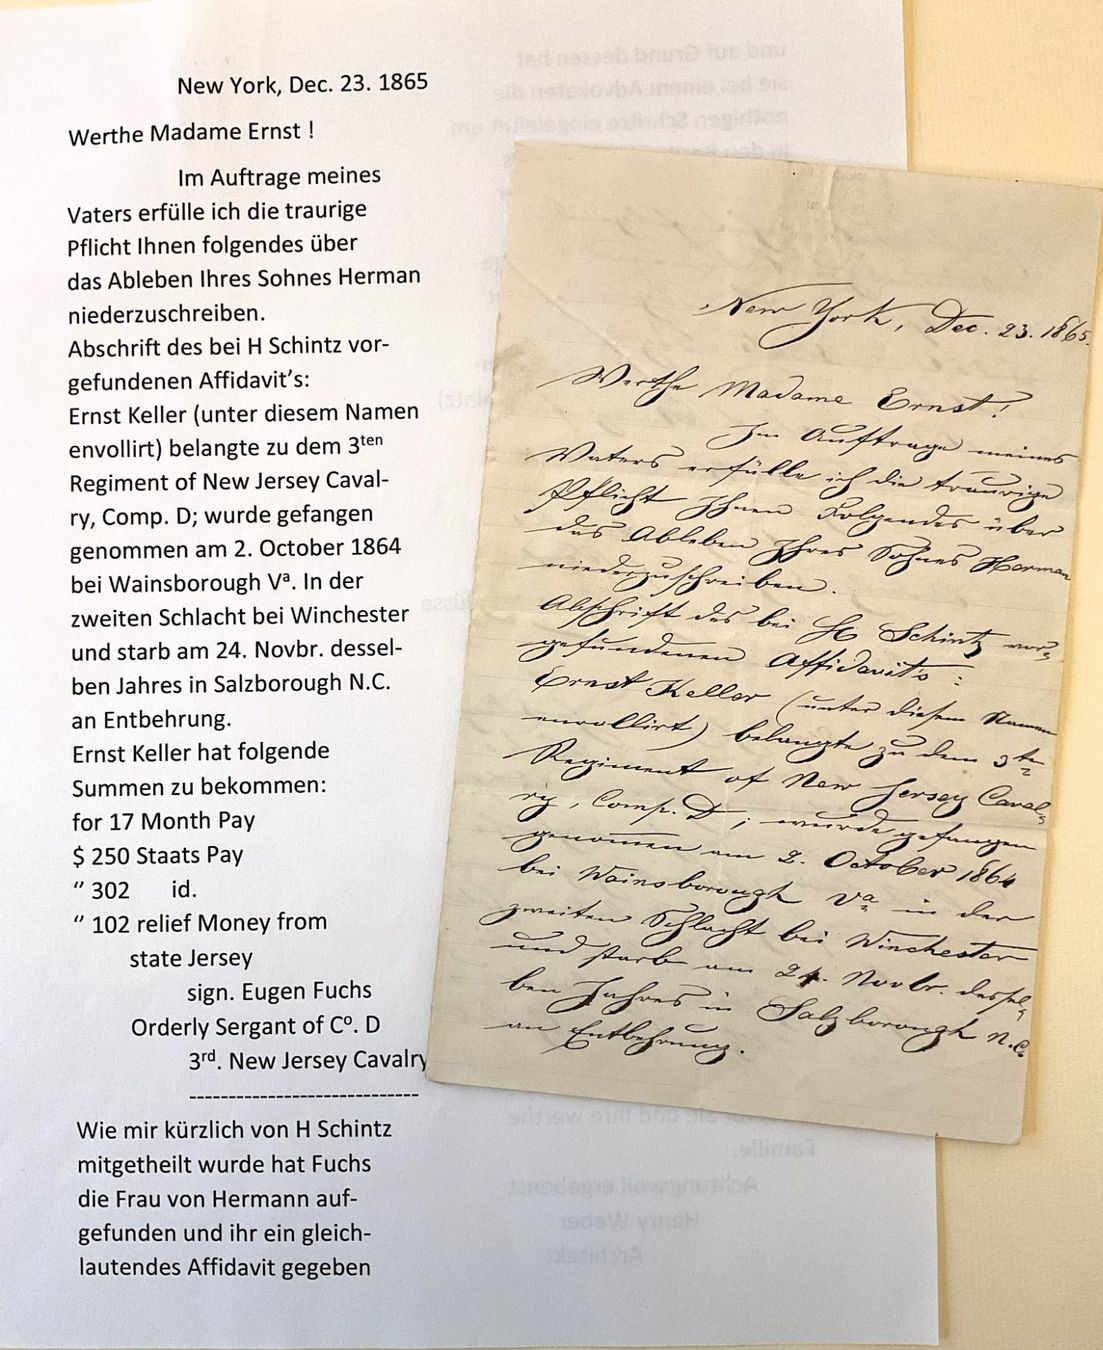 New York, Dec. 23. 1865
Werthe Madame Ernst !
Im Auftrage meines
Vaters erfülle ich die traurige
Pflicht Ihnen folgendes über
das Ableben Ihres Sohnes Herman
niederzuschreiben.
Abschrift des bei H Schintz vor-
gefundenen Affidavit's:
Ernst Keller (unter diesem Namen
envollirt) belangte zu dem 3ten
Regiment of New Jersey Caval-
ry, Comp. D; wurde gefangen
genommen am 2. October 1864
bei Wainsborough Vª. In der
zweiten Schlacht bei Winchester
und starb am 24. Novbr. dessel-
ben Jahres in Salzborough N.C.
an Entbehrung.
Ernst Keller hat folgende
Summen zu bekommen:
for 17 Month Pay
$ 250 Staats Pay
" 302 id.
" 102 relief Money from
state Jersey
sign. Eugen Fuchs
Orderly Sergant of Cº. D
3rd. New Jersey Cavalry
----------------------------
Wie mir kürzlich von H Schintz
mitgetheilt wurde hat Fuchs
die Frau von Hermann auf-
gefunden und ihr ein gleich-
lautendes Affidavit gegeben
New York, Dec. 23. 1865.
Werthe Madame Ernst!
Im Auftrage meines
Vaters erfülle ich die traurige
Pflicht Ihnen Folgendes über
das Ableben Ihres Sohnes Herman
niederzuschreiben.
Abschrift des bei H Schintz vor-
gefundenen Affidavit's :
Ernst Keller (unter diesem Namen
envollirt) belangte zu dem 3te
Regiment of New Jersey Caval-
ry, Comp. D; wurde gefangen
genommen am 2. October 1864
bei Wainsborough Vª in der
zweiten Schlacht bei Winchester
und starb am 24. Novbr. dessel-
ben Jahres in Salzborough N.C.
an Entbehrung.